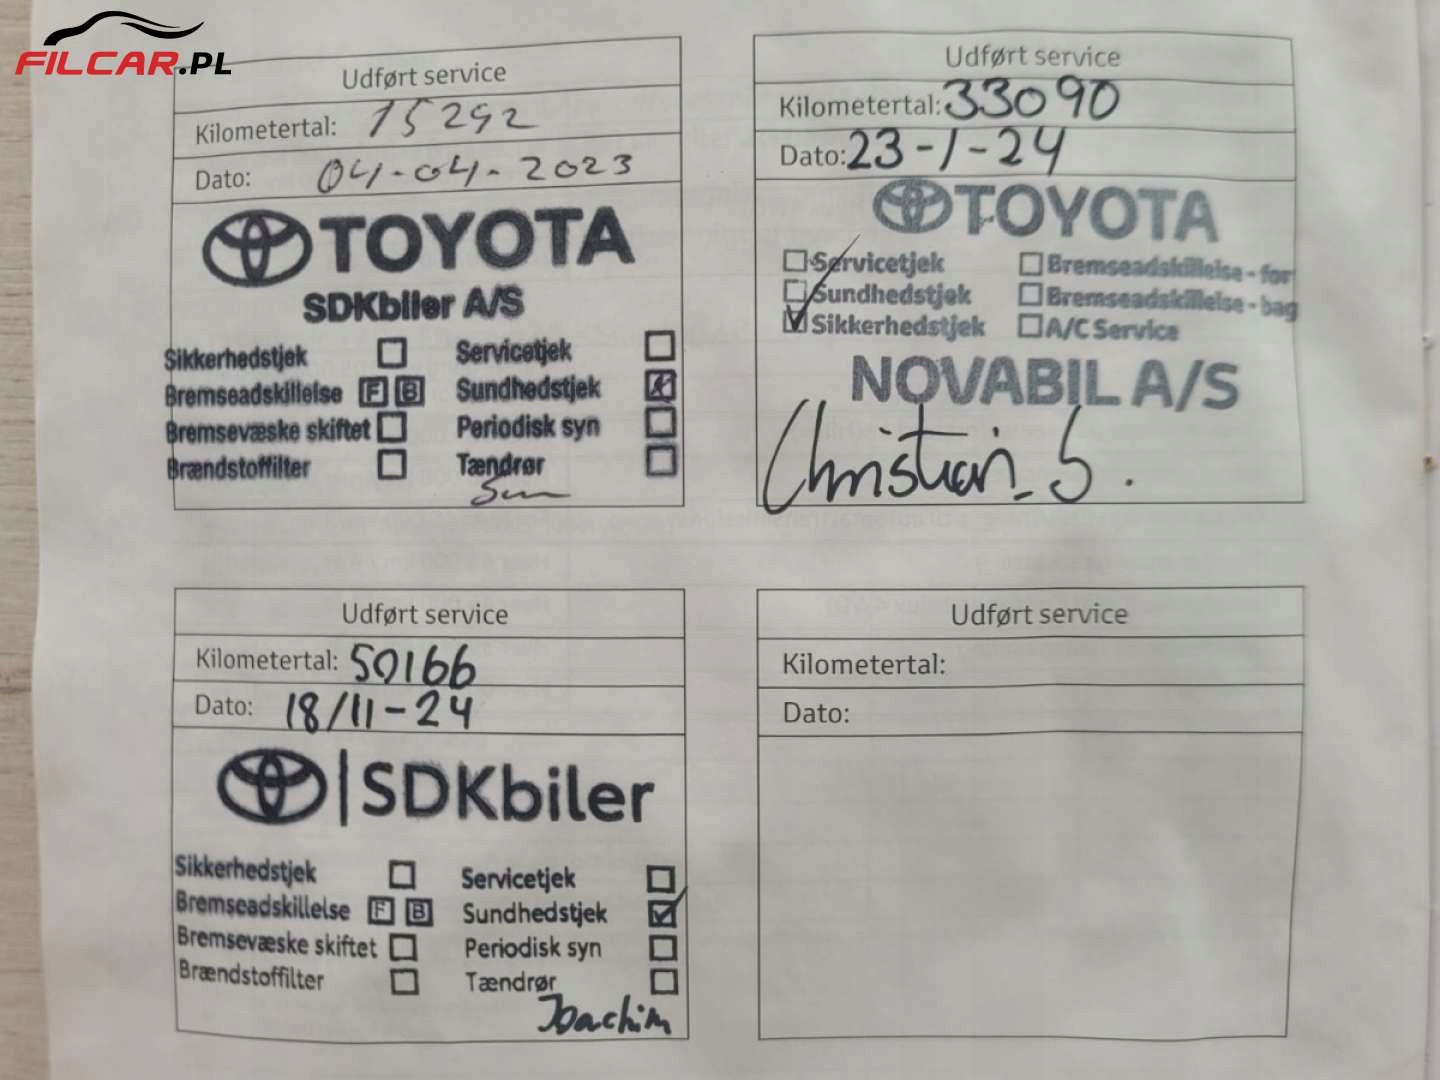 FILCAR.PL
Udført service
Kilometertal: 15292
Dato: 04-04-2023
TOYOTA
SDKbiler A/S
Sikkerhedstjek Servicetjek
Bremseadskillelse F B Sundhedstjek
Bremsevæske skiftet Periodisk syn
Brændstoffilter Tændrør
Udført service
Kilometertal: 33090
Dato: 23-1-24
TOYOTA
Servicetjek Bremseadskillelse - for
Sundhedstjek Bremseadskillelse - bag
Sikkerhedstjek A/C Service
NOVABIL A/S
Christian. S.
Udført service
Kilometertal: 50166
Dato: 18/11-24
SDKbiler
Sikkerhedstjek Servicetjek
Bremseadskillelse F B Sundhedstjek
Bremsevæske skiftet Periodisk syn
Brændstoffilter Tændrør
Joachim
Udført service
Kilometertal:
Dato: